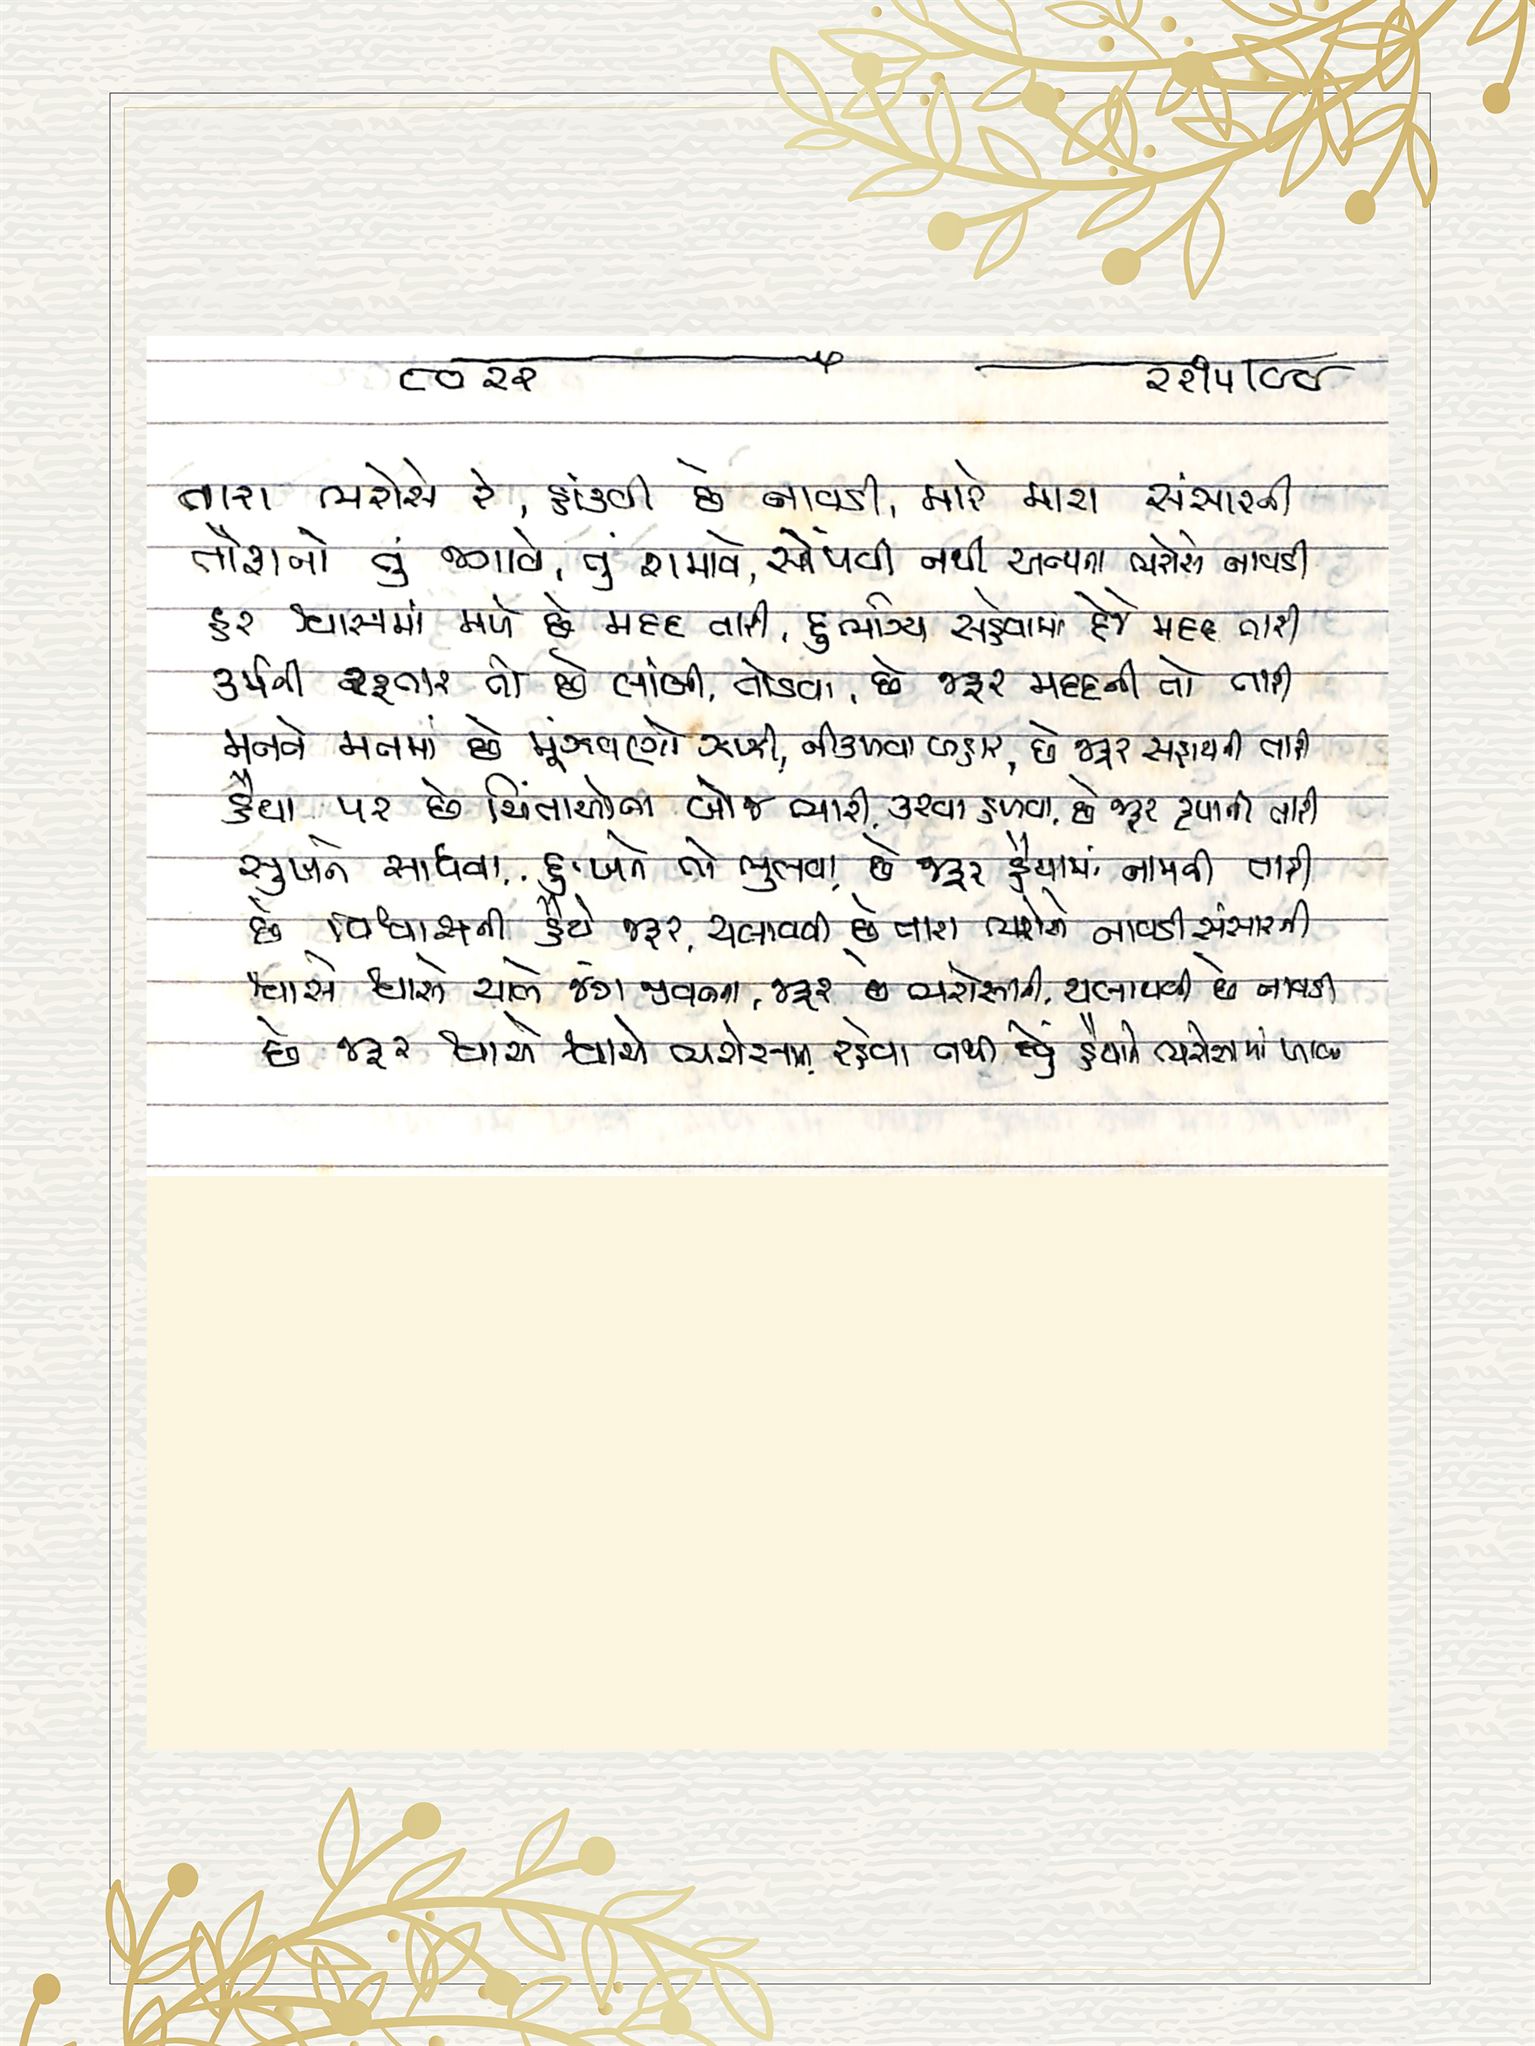 ૮૦૨૨
તારા ભરોસે રે, હાંકવી છે નાવડી, મારે મારા સંસારની
તોફાનો તું જગાવે, તું શમાવે, સોંપવી નથી અન્યના ભરોસે નાવડી
હર શ્વાસમાં મળે છે મદદ તારી, દુર્ભાગ્ય સહેવામાં દેજે મદદ તારી
કર્મની રફતાર તો છે લાંબી, તોડવા, છે જરૂર મદદની તો તારી
મનને મનમાં છે મૂંઝવણો ઝાઝી, નીકળવા બહાર, છે જરૂર સહાયની તારી
હૈયા પર છે ચિંતાઓના બોજ ભારી, કરવા હળવા, છે જરૂર કૃપાની તારી
સુખને સાધવા, દુઃખને તો ભુલવા, છે જરૂર હૈયામાં નામની તારી
છે વિશ્વાસની હૈયે જરૂર, ચલાવવી છે તારા ભરોસે નાવડી સંસારની
શ્વાસે શ્વાસે ચાલે જંગ જીવનના, જરૂર છે ભરોસાની, ચલાવવી છે નાવડી
છે જરૂર શ્વાસે શ્વાસે ભરોસાની, રહેવા નથી દેવું હૈયાને ભરોસામાં ખાલી